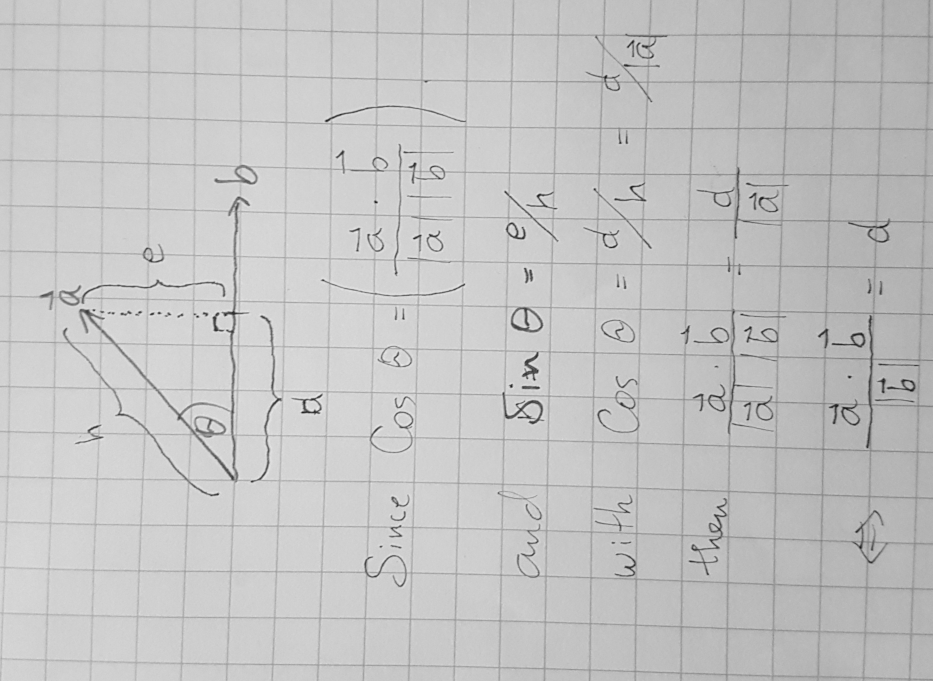 a⃗
h
e
θ
b
d
Since Cos θ = (a⃗ · b⃗ / |a⃗| |b⃗|)
and Sin θ = e/h
with Cos θ = d/h = d/|a⃗|
then a⃗ · b⃗ / |a⃗| |b⃗| = d / |a⃗|
⇔ a⃗ · b⃗ / |b⃗| = d